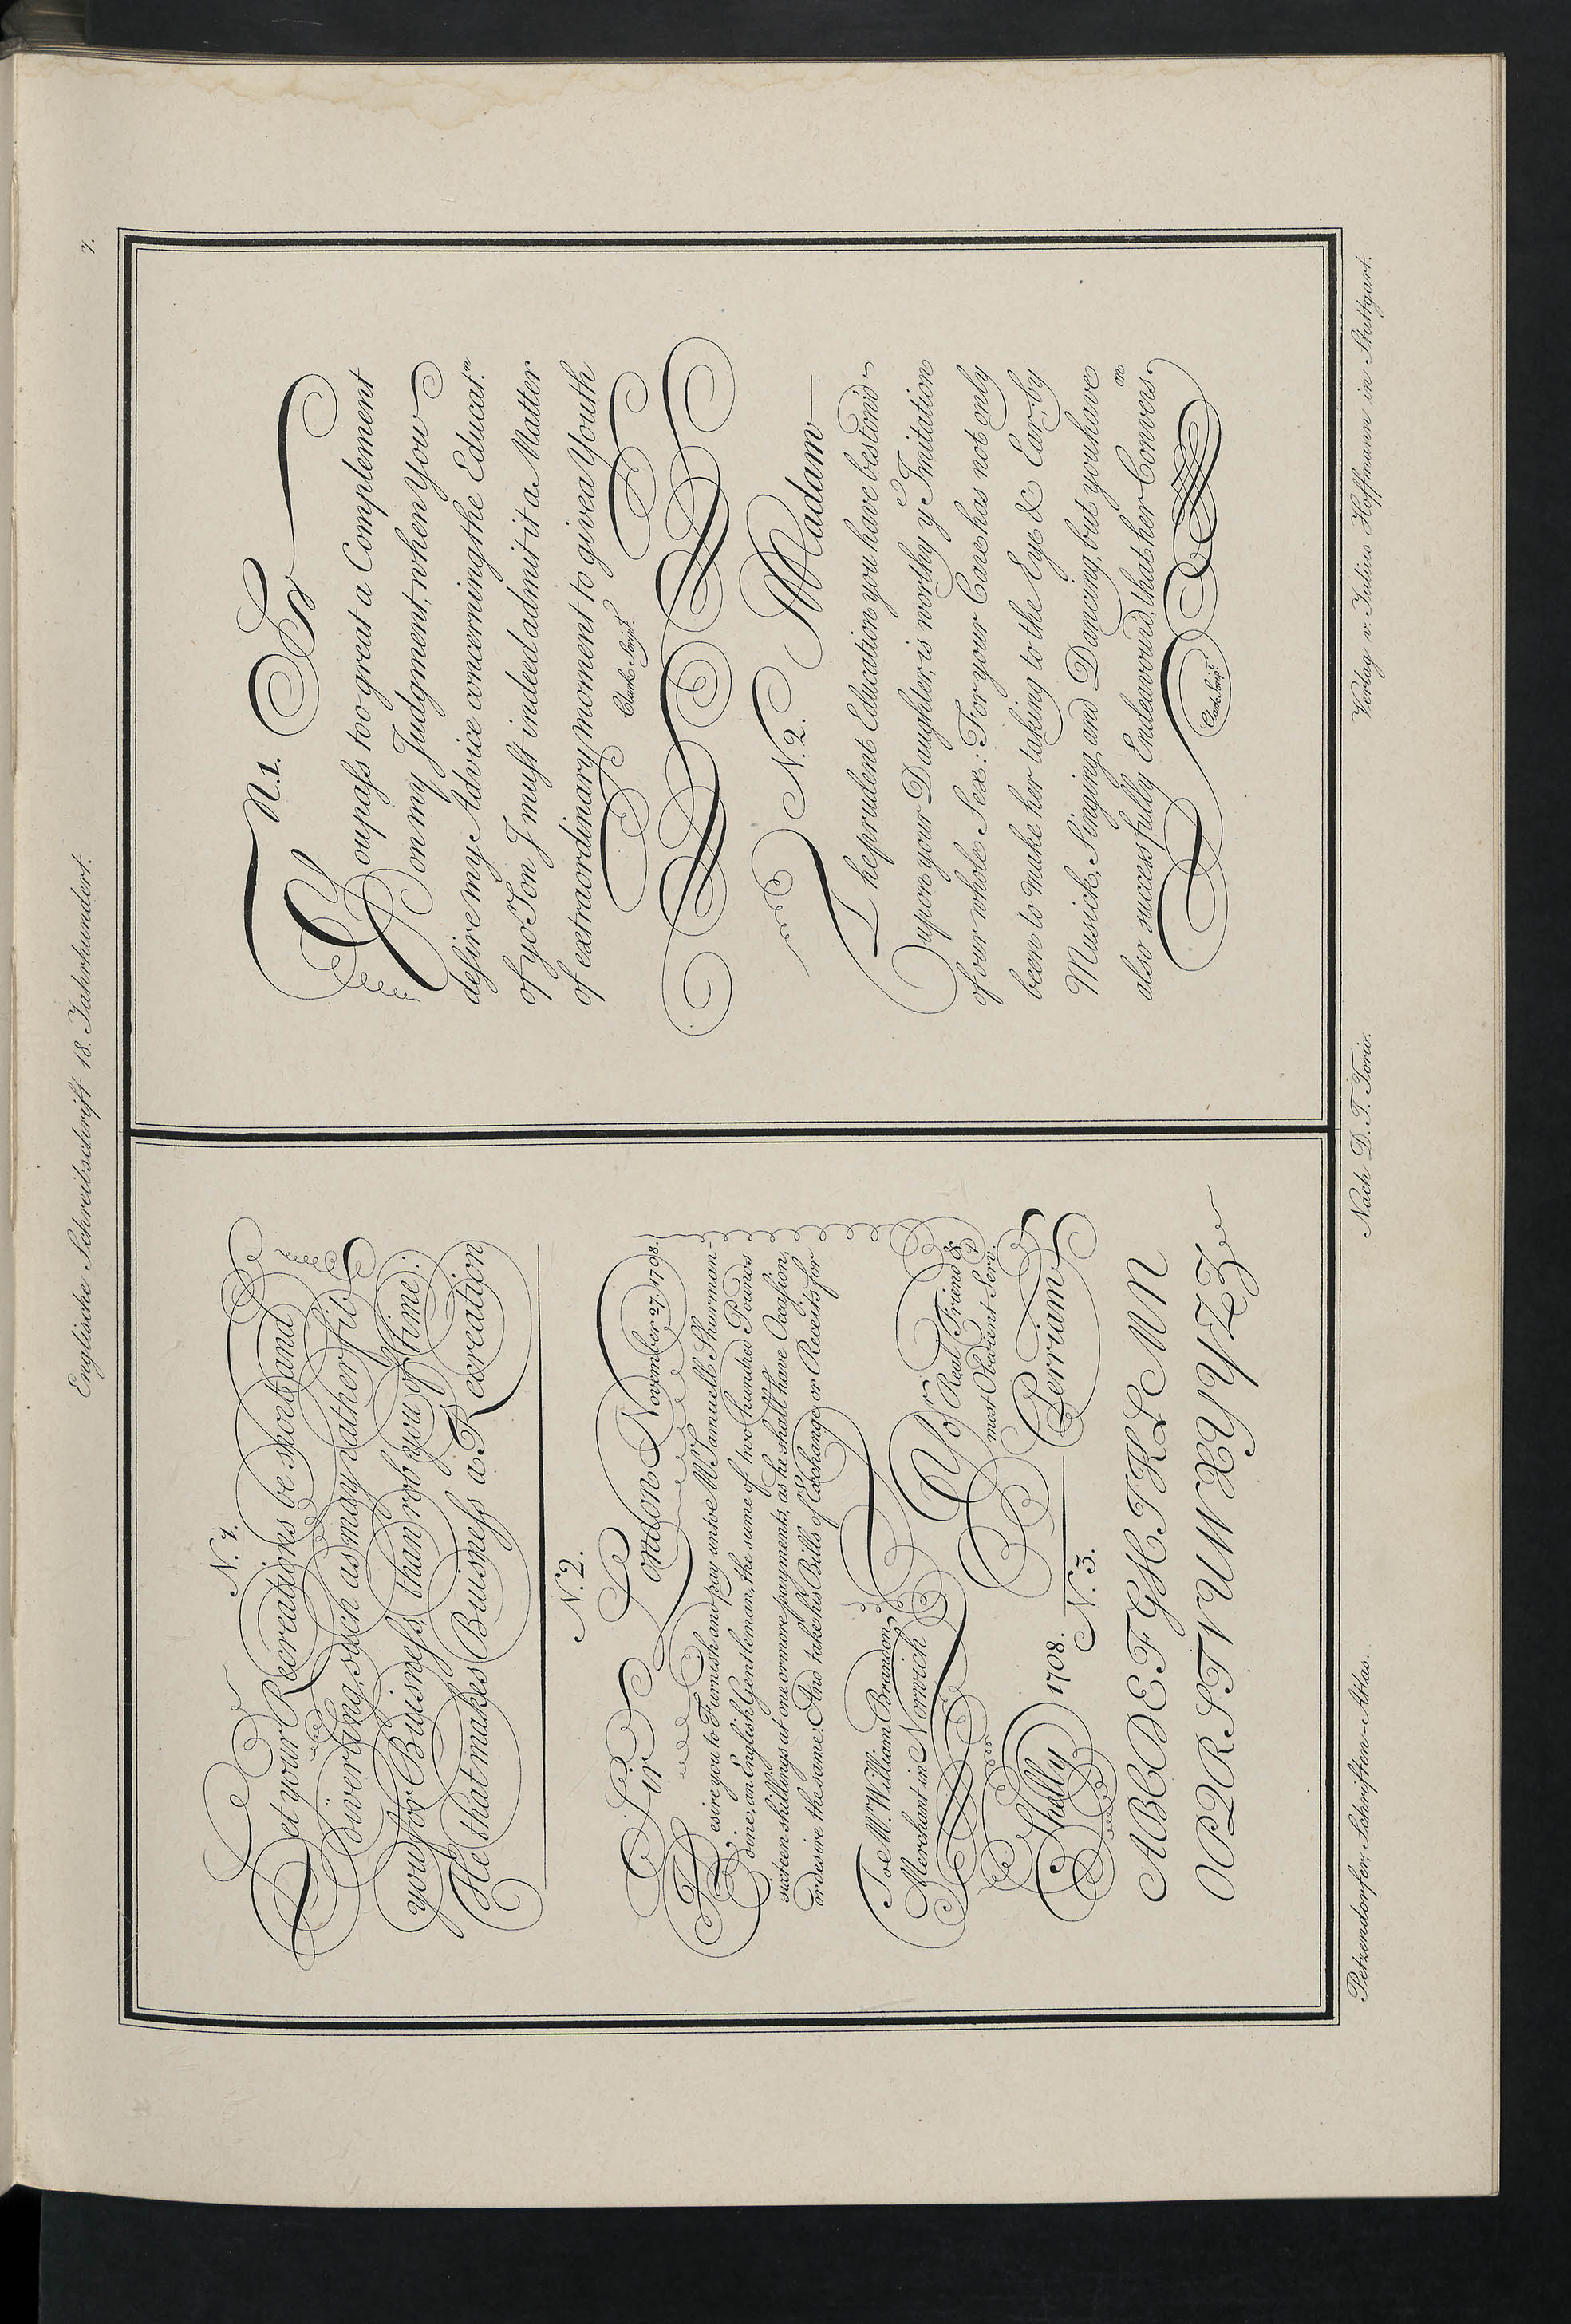 Englische Schreibschrift 18. Jahrhundert.
7.
N. 1.
Let your Recreations be short and
diverting, such as may rather fit
you for Buisness, than rob you of time:
He that makes Buisness a Recreation
N. 2.
London November 27. 1708.
Sir
Desire you to Furnish and pay unto Mr. Samuell Shurman-
dine, an English Gentleman, the sume of two hundred Pounds
sixteen shillings at one or more payments, as he shall have Occasion,
or desire the same: And take his Bills of Exchange, or Receits for
To Mr. William Brandon,
Merchant in Norwich
Yor. Real Friend &
most Obedient Servt.
Shelly 1708.
Perriam
N. 3.
A B C D E F G H I K L M N
O P Q R S T V U W X Y Y Z Z
N. 1. Sr
You pass too great a Complement
on my Judgment, when You
desire my Advice concerning the Educatn.
of yor Son I must indeed admit it a Matter
of extraordinary moment to give a Youth
Clark Script.
N. 2. Madam
The prudent Education you have bestow'd
upon your Daughter, is worthy ye Imitation
of our whole Sex: For your Care has not only
been to make her taking to the Eye & Ear, by
Musick, Singing, and Dancing, but you have
also successfully Endeavour'd, that her Converson
Clark Scrip.
Petzendorfer, Schriften-Atlas.
Nach D. T. Torio.
Verlag v. Julius Hoffmann in Stuttgart.